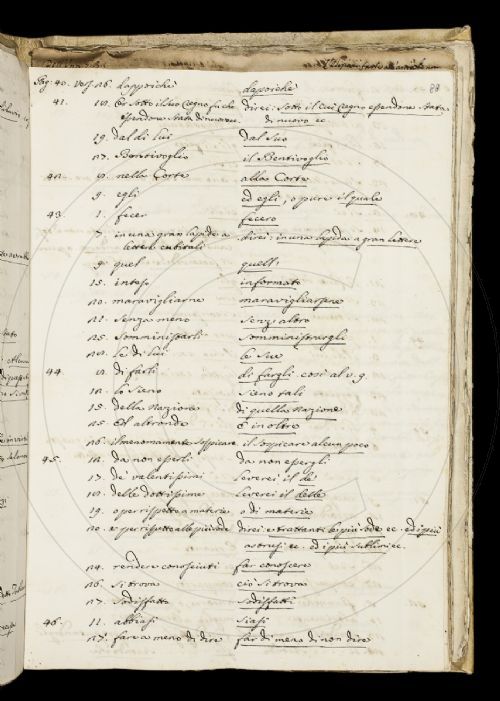 88
Pag: 40. Vers. 26. dappoichè dapoichè
41. 10. Sotto il suo Regno fiche direi: Sotto il cui Regno essendone stata
essendone stata di nuovo di nuovo ec.
19. dal di lui dal suo
27. Bentivoglio il Bentivoglio
42. 9. nella Corte alla Corte
9. egli ed egli, o pure il quale
43. 1. fecer fecero
7. in una gran lapide a direi: in una lapida a gran lettere
lettere cubitali
9. quel quell'
15. inteso informato
20. maravigliarne maravigliarsene
22. senza meno senz'altro
25. somministrarli somministrargli
le di lui le sue
44. di farli di fargli. così al v. 9.
12. lo sieno sieno tali
15. della Nazione di quella Nazione
25. Et altronde E inoltre
26. il menomamente sospicare il sospicare alcun poco
45. 12. da non esserli da non essergli
17. de' valentissimi leverei il de'
delle dottissime leverei il delle
19. o per rispetto a materie o di materie
20. e per rispetto alle più sode direi e trattanti le più sode ec. ed i più
astrusi ec. ed i più sublimi ec.
24. rendere conosciuti far conoscere
26. si trova ciò si trova
27. sodisfatta sodisfatti
46. 11. abbiasi siasi
27. fare a meno di dire far di meno di non dire